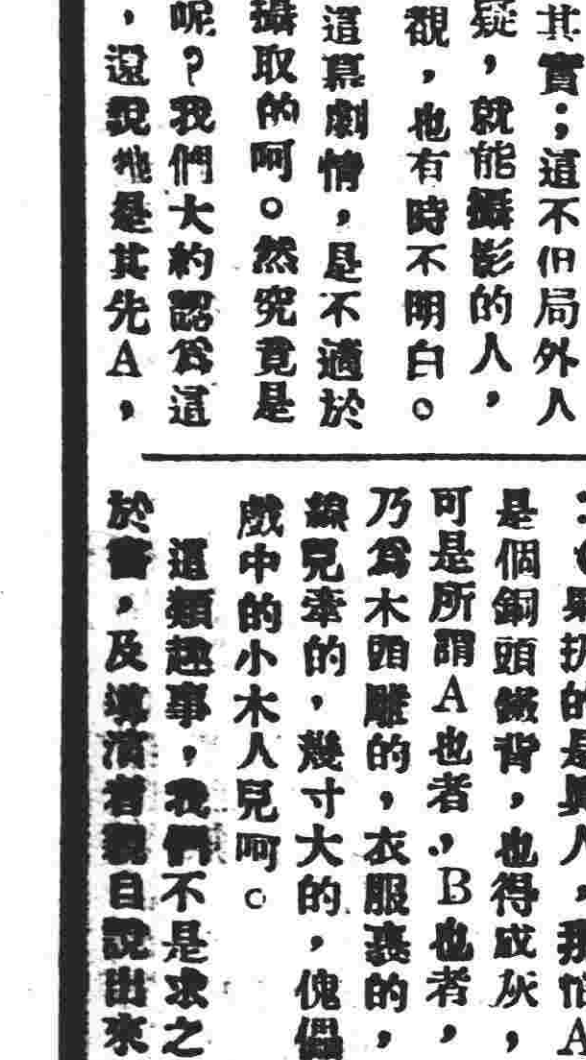 其實；這不但局外人
疑，就能攝影的人，
觀，也有時不明白。
這幕劇情，是不適於
攝取的呵。然究竟是
呢？我們大約認爲這
，還說他是其先A，
的是真人，那怕A
是個銅頭鐵背，也得成灰，
可是所謂A也者，B也者，
乃爲木頭雕的，衣服裹的，
線兒牽的，幾寸大的，傀儡
戲中的小木人兒呵。
這類趣事，我們不是求之
於書，及導演者親自說出來